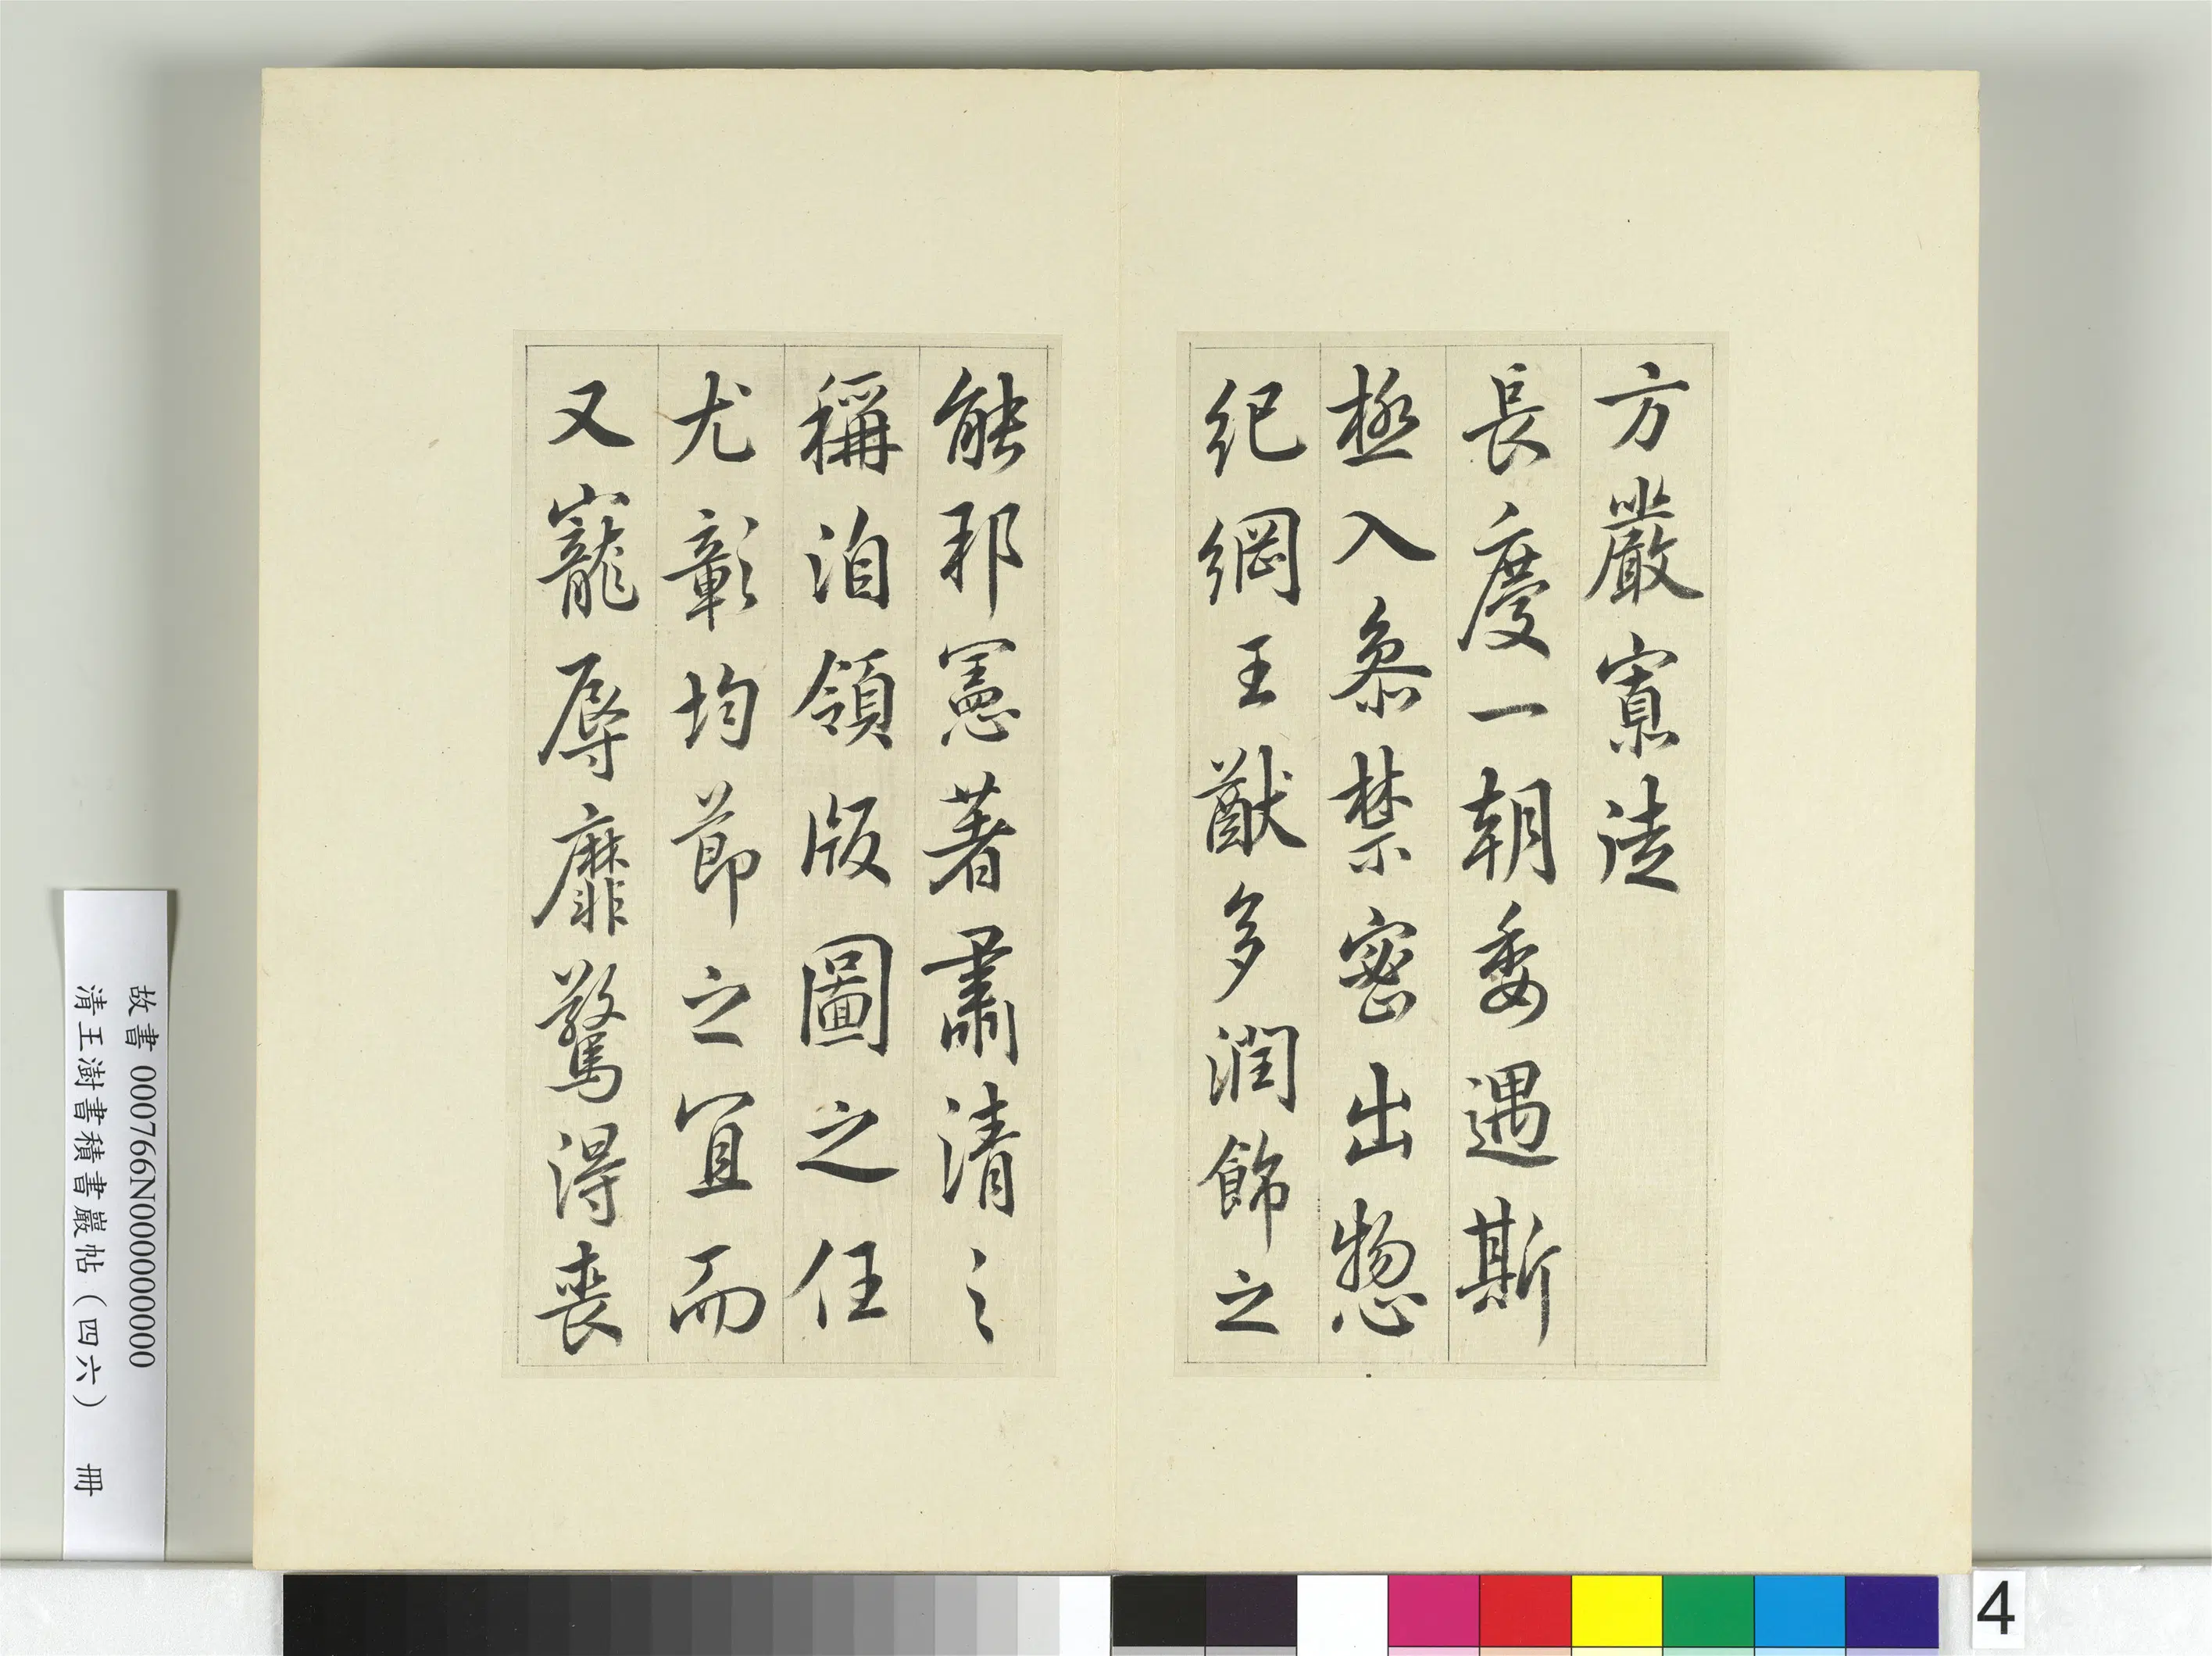 方嚴寮法
長慶一朝委遇斯
極入叅禁密出惣
紀綱王猷多潤飾之
能邦憲著肅清之
稱洎領版圖之任
尤彰均節之宜而
又寵辱靡驚淂喪
故書 000766N000000000
清王澍書積書巖帖（四六） 冊
4